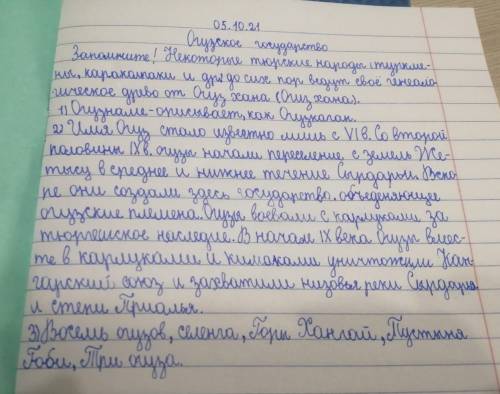 05.10.21
Огузское государство
Запомните! Некоторые тюркские народы (туркме-
ны, каракалпаки и др.) до сих пор ведут своё генеало-
гическое древо от Огуз хана (Огиз хана).
1) Огузнаме - описывает, как Огузкаган.
2) Имя Огуз стало известно лишь с VI в. Со второй
половины IX в. огузы начали переселение, с земель Же-
тысу в среднее и нижнее течение Сырдарьи. Вско-
ре они создали здесь государство. объеденяющее
огузские племена. Огузы воевали с карлуками за
тюргешское наследие. В начале IX века Огузы вмес-
те в карлуками и кимаками уничтожили Кан-
гарский союз и захватили низовья реки Сырдарьи
и степи Приалья.
3) Восемь огузов, селенга, Горы Хангай, Пустыня
Гоби, Три огуза.